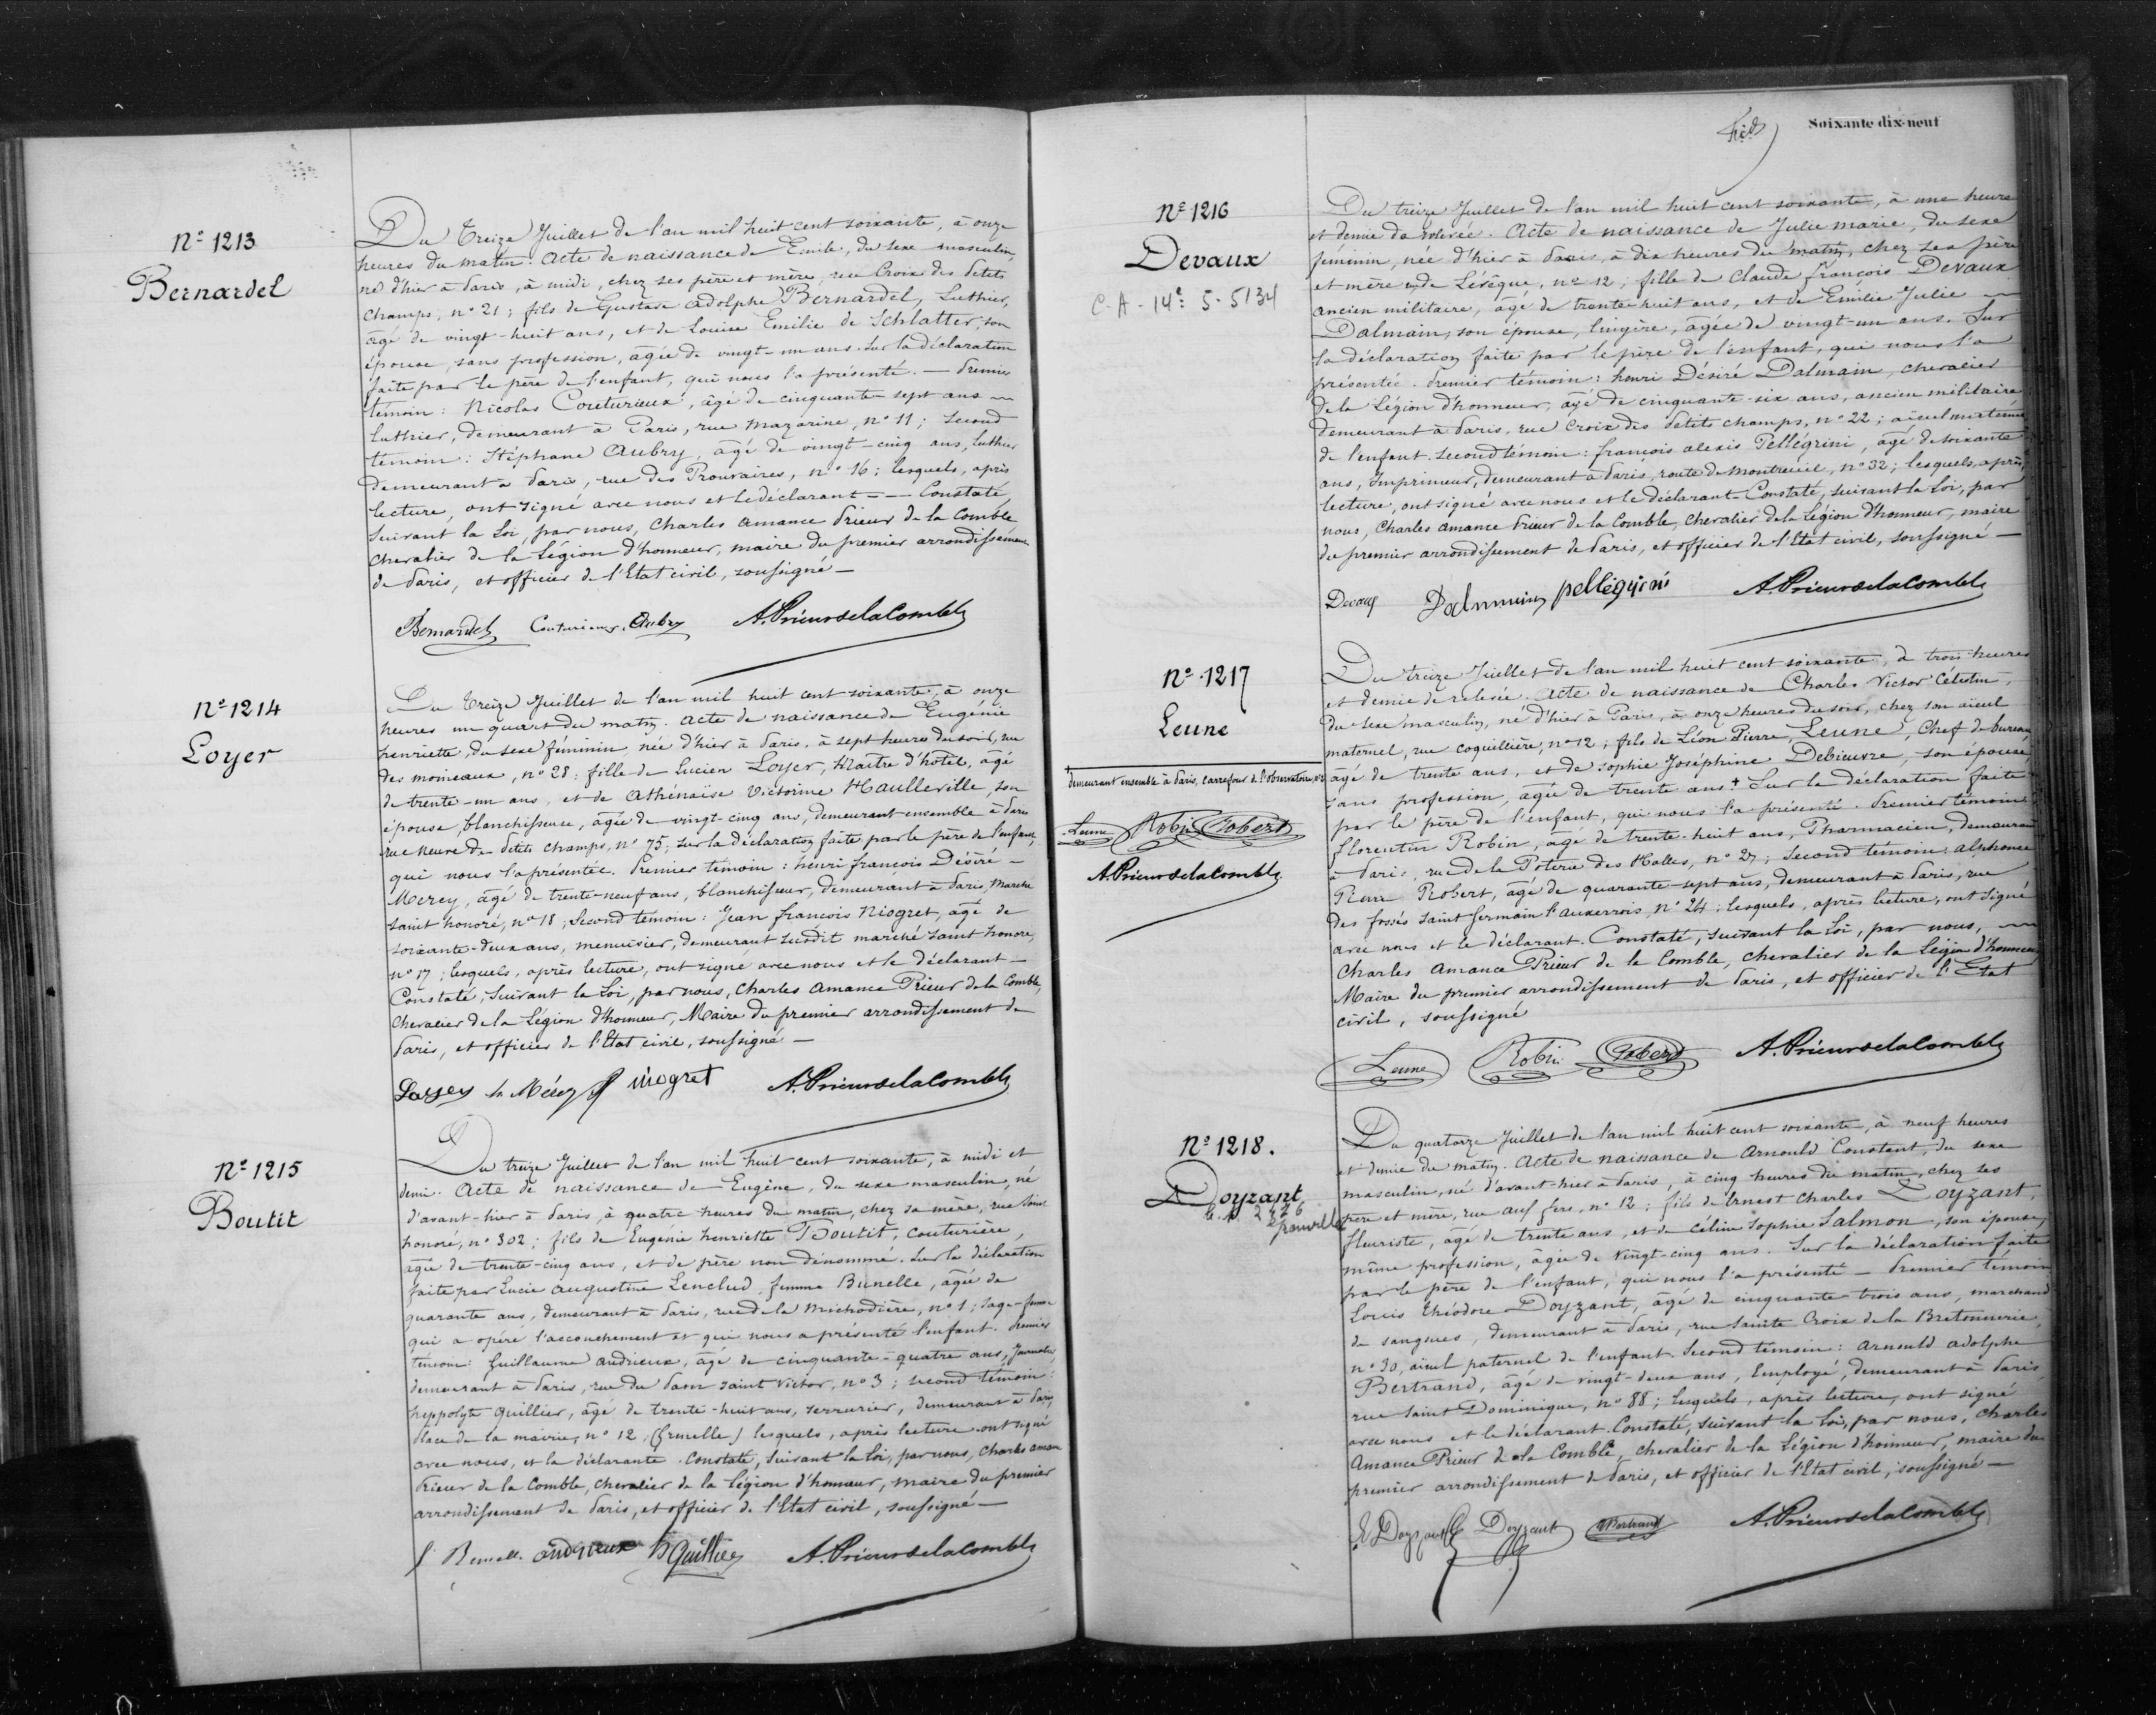 Nº 1213
Bernardel
Du Treize Juillet de l'an mil huit cent soixante, à onze
heures du matin. Acte de naissance de Emile, du sexe masculin,
né d'hier à Paris, à midi, chez ses père et mère, rue Croix des Petits
Champs, nº 21; fils de Gustave Adolphe Bernardel, Luthier,
âgé de vingt-huit ans, et de Louise Emilie de Schlatter, son
épouse, sans profession, âgée de vingt-un ans. Sur la déclaration
faite par le père de l'enfant, qui nous l'a présenté. — Premier
témoin: Nicolas Couturieux, âgé de cinquante-sept ans
luthier, demeurant à Paris, rue Mazarine, nº 11; Second
témoin: Stéphane Aubry, âgé de vingt-cinq ans, luthier
demeurant à Paris, rue des Prouvaires, nº 16; lesquels, après
lecture, ont signé avec nous et le déclarant — Constaté,
suivant la Loi, par nous, Charles Amance Prieur de la Comble,
chevalier de la Légion d'honneur, maire du premier arrondissement
de Paris, et officier de l'Etat civil, soussigné —
Bernardel Couturieux Aubry A. Prieur de la Comble
Nº 1214
Loyer
Du Treize Juillet de l'an mil huit cent soixante, à onze
heures un quart du matin. Acte de naissance de Eugénie
henriette, du sexe féminin, née d'hier à Paris, à sept heures du soir, rue
des moineaux, nº 28; fille de Lucien Loyer, Maître d'hôtel, âgé
de trente-un ans, et de Athénaïse Victorine Haulleville, son
épouse, blanchisseuse, âgée de vingt-cinq ans, demeurant ensemble à Paris
rue Neuve des Petits champs, nº 75; sur la déclaration faite par le père de l'enfant,
qui nous l'a présentée. Premier témoin: henri françois Désiré —
Merey, âgé de trente-neuf ans, blanchisseur, demeurant à Paris, Marché
saint honoré, nº 18; Second témoin: Jean françois Niogret, âgé de
soixante-deux ans, menuisier, demeurant susdit marché saint honoré,
nº 17; lesquels, après lecture, ont signé avec nous et le déclarant —
Constaté, suivant la Loi, par nous, Charles Amance Prieur de la Comble,
Chevalier de la Légion d'honneur, Maire du premier arrondissement de
Paris, et officier de l'Etat civil, soussigné —
Loyer h Mérey niogret A. Prieur de la Comble
Nº 1215
Boutit
Du treize Juillet de l'an mil huit cent soixante, à midi et
demi. Acte de naissance de Eugène, du sexe masculin, né
d'avant-hier à Paris, à quatre heures du matin, chez sa mère, rue Saint
honoré, nº 302; fils de Eugénie henriette Boutit, couturière,
âgée de trente-cinq ans, et de père non dénommé. Sur la déclaration
faite par Lucie Augustine Lenclud, femme Bunelle, âgée de
quarante ans, demeurant à Paris, rue de la Michodière, nº 1; sage-femme
qui a opéré l'accouchement et qui nous a présenté l'enfant. Premier
témoin: Guillaume Andrieux, âgé de cinquante-quatre ans, Journalier,
demeurant à Paris, rue du Paon saint Victor, nº 3; second témoin:
hyppolyte Quillier, âgé de trente-huit ans, serrurier, demeurant à Paris,
Place de la mairie, nº 12, (Grenelle) lesquels, après lecture ont signé
avec nous, et la déclarante. Constaté, suivant la loi, par nous, Charles aman
Prieur de la Comble, chevalier de la Légion d'honneur, maire du premier
arrondissement de Paris, et officier de l'Etat civil, soussigné —
f Bunelle andrieux h Quillier A. Prieur de la Comble
Soixante-dix-neuf
Nº 1216
Devaux
C-A - 14e: 5-5134
Du treize Juillet de l'an mil huit cent soixante, à une heure
et demie de relevée. Acte de naissance de Julie Marie, du sexe
féminin, née d'hier à Paris, à dix heures du matin, chez ses père
et mère rue Lévêque, nº 12; fille de Claude françois Devaux
ancien militaire, âgé de trente-huit ans, et de Emilie Julie
Dalmain, son épouse, lingère, âgée de vingt-un ans. Sur
la déclaration faite par le père de l'enfant, qui nous l'a
présentée. Premier témoin: henri Désiré Dalmain, chevalier
de la Légion d'honneur, âgé de cinquante-six ans, ancien militaire
demeurant à Paris, rue Croix des Petits champs, nº 22; aïeul maternel
de l'enfant. Second témoin: françois alexis Pellégrini, âgé de soixante
ans, Imprimeur, demeurant à Paris, route de Montreuil, nº 32; lesquels, après
lecture, ont signé avec nous et le déclarant. Constaté, suivant la Loi, par
nous, Charles Amance Prieur de la Comble, Chevalier de la Légion d'honneur, maire
du premier arrondissement de Paris, et officier de l'Etat civil, soussigné —
Devaux Dalmain pellégrini A. Prieur de la Comble
Nº 1217
Leune
Du treize Juillet de l'an mil huit cent soixante, à trois heures
et demie de relevée. Acte de naissance de Charles Victor Célestin,
du sexe masculin, né d'hier à Paris, à onze heures du soir, chez son aïeul
maternel, rue coquillière, nº 12; fils de Léon Pierre Leune, Chef de bureau
âgé de trente ans, et de Sophie Joséphine Debieuvre, son épouse,
sans profession, âgée de trente ans + Sur la déclaration faite
par le père de l'enfant, qui nous l'a présenté. Premier témoin
florentin Robin, âgé de trente-huit ans, Pharmacien, demeurant
à Paris, rue de la Poterie des Halles, nº 27; Second témoin: alphonse
Pierre Robert, âgé de quarante-sept ans, demeurant à Paris, rue
des fossés saint germain l'auxerrois, nº 24; lesquels, après lecture, ont signé
avec nous et le déclarant. Constaté, suivant la Loi, par nous,
Charles Amance Prieur de la Comble, chevalier de la Légion d'honneur,
Maire du premier arrondissement de Paris, et officier de l'Etat
civil, soussigné
+ demeurant ensemble à Paris, carrefour de l'observatoire,
Leune Robin Robert
A. Prieur de la Comble
Leune Robin Robert A. Prieur de la Comble
Nº 1218.
Doyzant.
Du quatorze Juillet de l'an mil huit cent soixante, à neuf heures
et demie du matin. Acte de naissance de Arnould Constant, du sexe
masculin, né d'avant-hier à Paris, à cinq heures du matin, chez ses
père et mère, rue aux fers, nº 12; fils de Ernest Charles Doyzant,
fleuriste, âgé de trente ans, et de Céline Sophie Salmon, son épouse,
même profession, âgée de vingt-cinq ans. Sur la déclaration faite
par le père de l'enfant, qui nous l'a présenté — Premier témoin
Louis Théodore Doyzant, âgé de cinquante-trois ans, marchand
de sangsues, demeurant à Paris, rue Sainte Croix de la Bretonnerie,
nº 30, aïeul paternel de l'enfant. Second témoin: Arnould adolphe
Bertrand, âgé de vingt-deux ans, Employé, demeurant à Paris
rue Saint Dominique, nº 88; lesquels, après lecture, ont signé
avec nous et le déclarant. Constaté, suivant la Loi, par nous, Charles
Amance Prieur de la Comble, chevalier de la Légion d'honneur, maire du
premier arrondissement de Paris, et officier de l'Etat civil, soussigné —
E Doyzant Doyzant Bertrand A. Prieur de la Comble